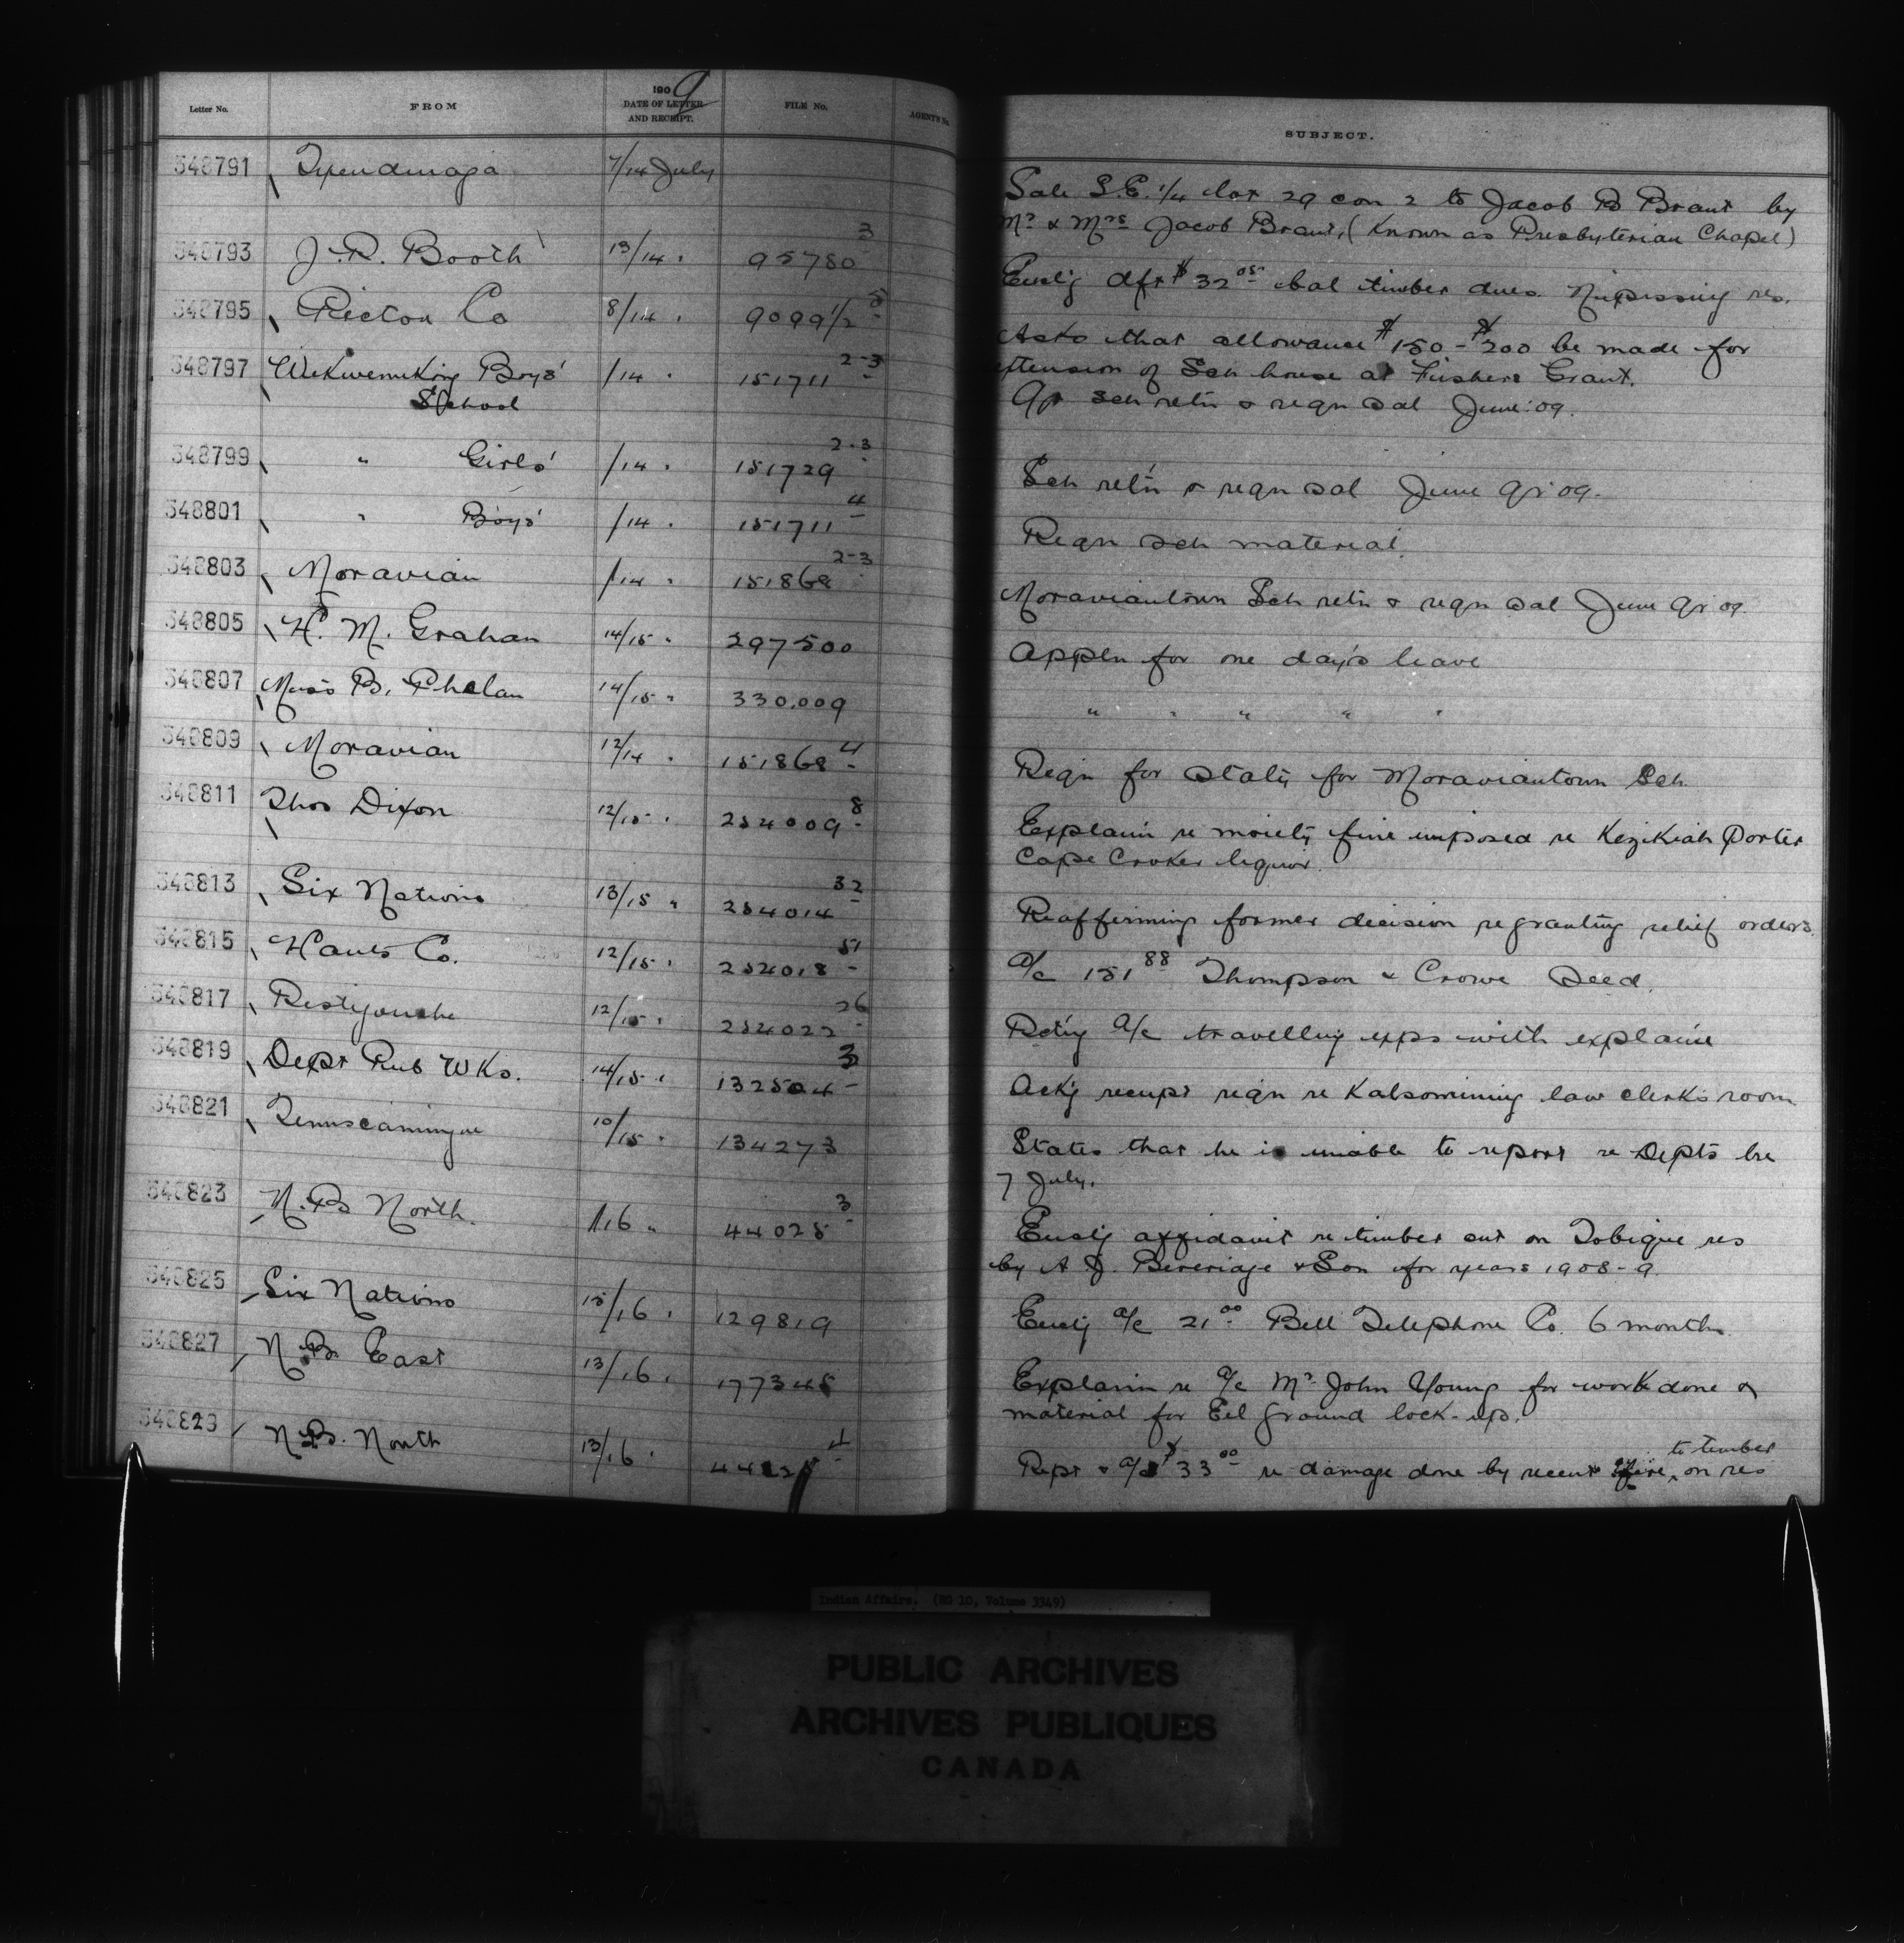 Letter No. FROM 1909 DATE OF LETTER AND RECEIPT. FILE No. AGENT'S No. SUBJECT.
348791 Tyendinaga 7/14 July Sale S.E. 1/4 Lot 29 con 2 to Jacob B Brant by
Mr & Mrs Jacob Brant, (Known as Presbyterian Chapel)
348793 J. R. Booth 13/14 " 95780 3 Encl'g dft $32 05 bal timber dues. Nipissing res.
348795 Pictou Co 8/14 " 9099 1/2 5 Asks that allowance $150 - $200 be made for
extension of Sch house at Fishers Grant.
348797 Wikwemikong Boys' /14 " 151711 2-3 Qr Sch retn & reqn sal June '09.
School
348799 " Girls' /14 " 151729 2-3 Sch ret'n & reqn sal June qr '09.
348801 " Boys' /14 " 151711 4 Reqn sch material.
348803 Moravian /14 " 151868 2-3 Moraviantown Sch retn & reqn sal June qr 09
348805 H. M. Graham 14/15 " 297500 Appln for one day's leave
348807 Miss B. Phelan 14/15 " 330,009 " " " " "
348809 Moravian 12/14 " 151868 4 Reqn for staty for Moraviantown Sch.
348811 Thos Dixon 12/15 " 254009 8 Explain'n re moiety fine imposed re Kezikiah Porter
Cape Croker liquor.
348813 Six Nations 13/15 " 254014 32 Reaffirming former decision re granting relief orders.
348815 Hants Co. 12/15 " 254018 51 a/c 151 88 Thompson & Crowe Seed.
348817 Restigouche 12/15 " 254022 26 Ret'g a/c travelling exps with explain'n
348819 Dept Pub Wks. 14/15 " 132504 3 Ack'g receipt reqn re Kalsomining law clerk's room
348821 Temiscamingue 10/15 " 134273 States that he is unable to report re Dept's ltre
7 July.
348823 N. B North. /16 " 44025 3 Encl'g affidavit re timber cut on Tobique res
by A J. Beveriage & Son for years 1908-9.
348825 Six Nations 15/16 " 129819 Encl'g a/c 21 00 Bell Telephone Co. 6 months.
348827 N.B. East 13/16 " 177345 Explain'n re a/c Mr John Young for work done &
material for Eel ground lock-up.
348829 N.B. North 13/16 " 4 Rept & a/c $33 00 re damage done by recent fire, to timber on res
Indian Affairs. (RG 10, Volume 3349)
PUBLIC ARCHIVES
ARCHIVES PUBLIQUES
CANADA